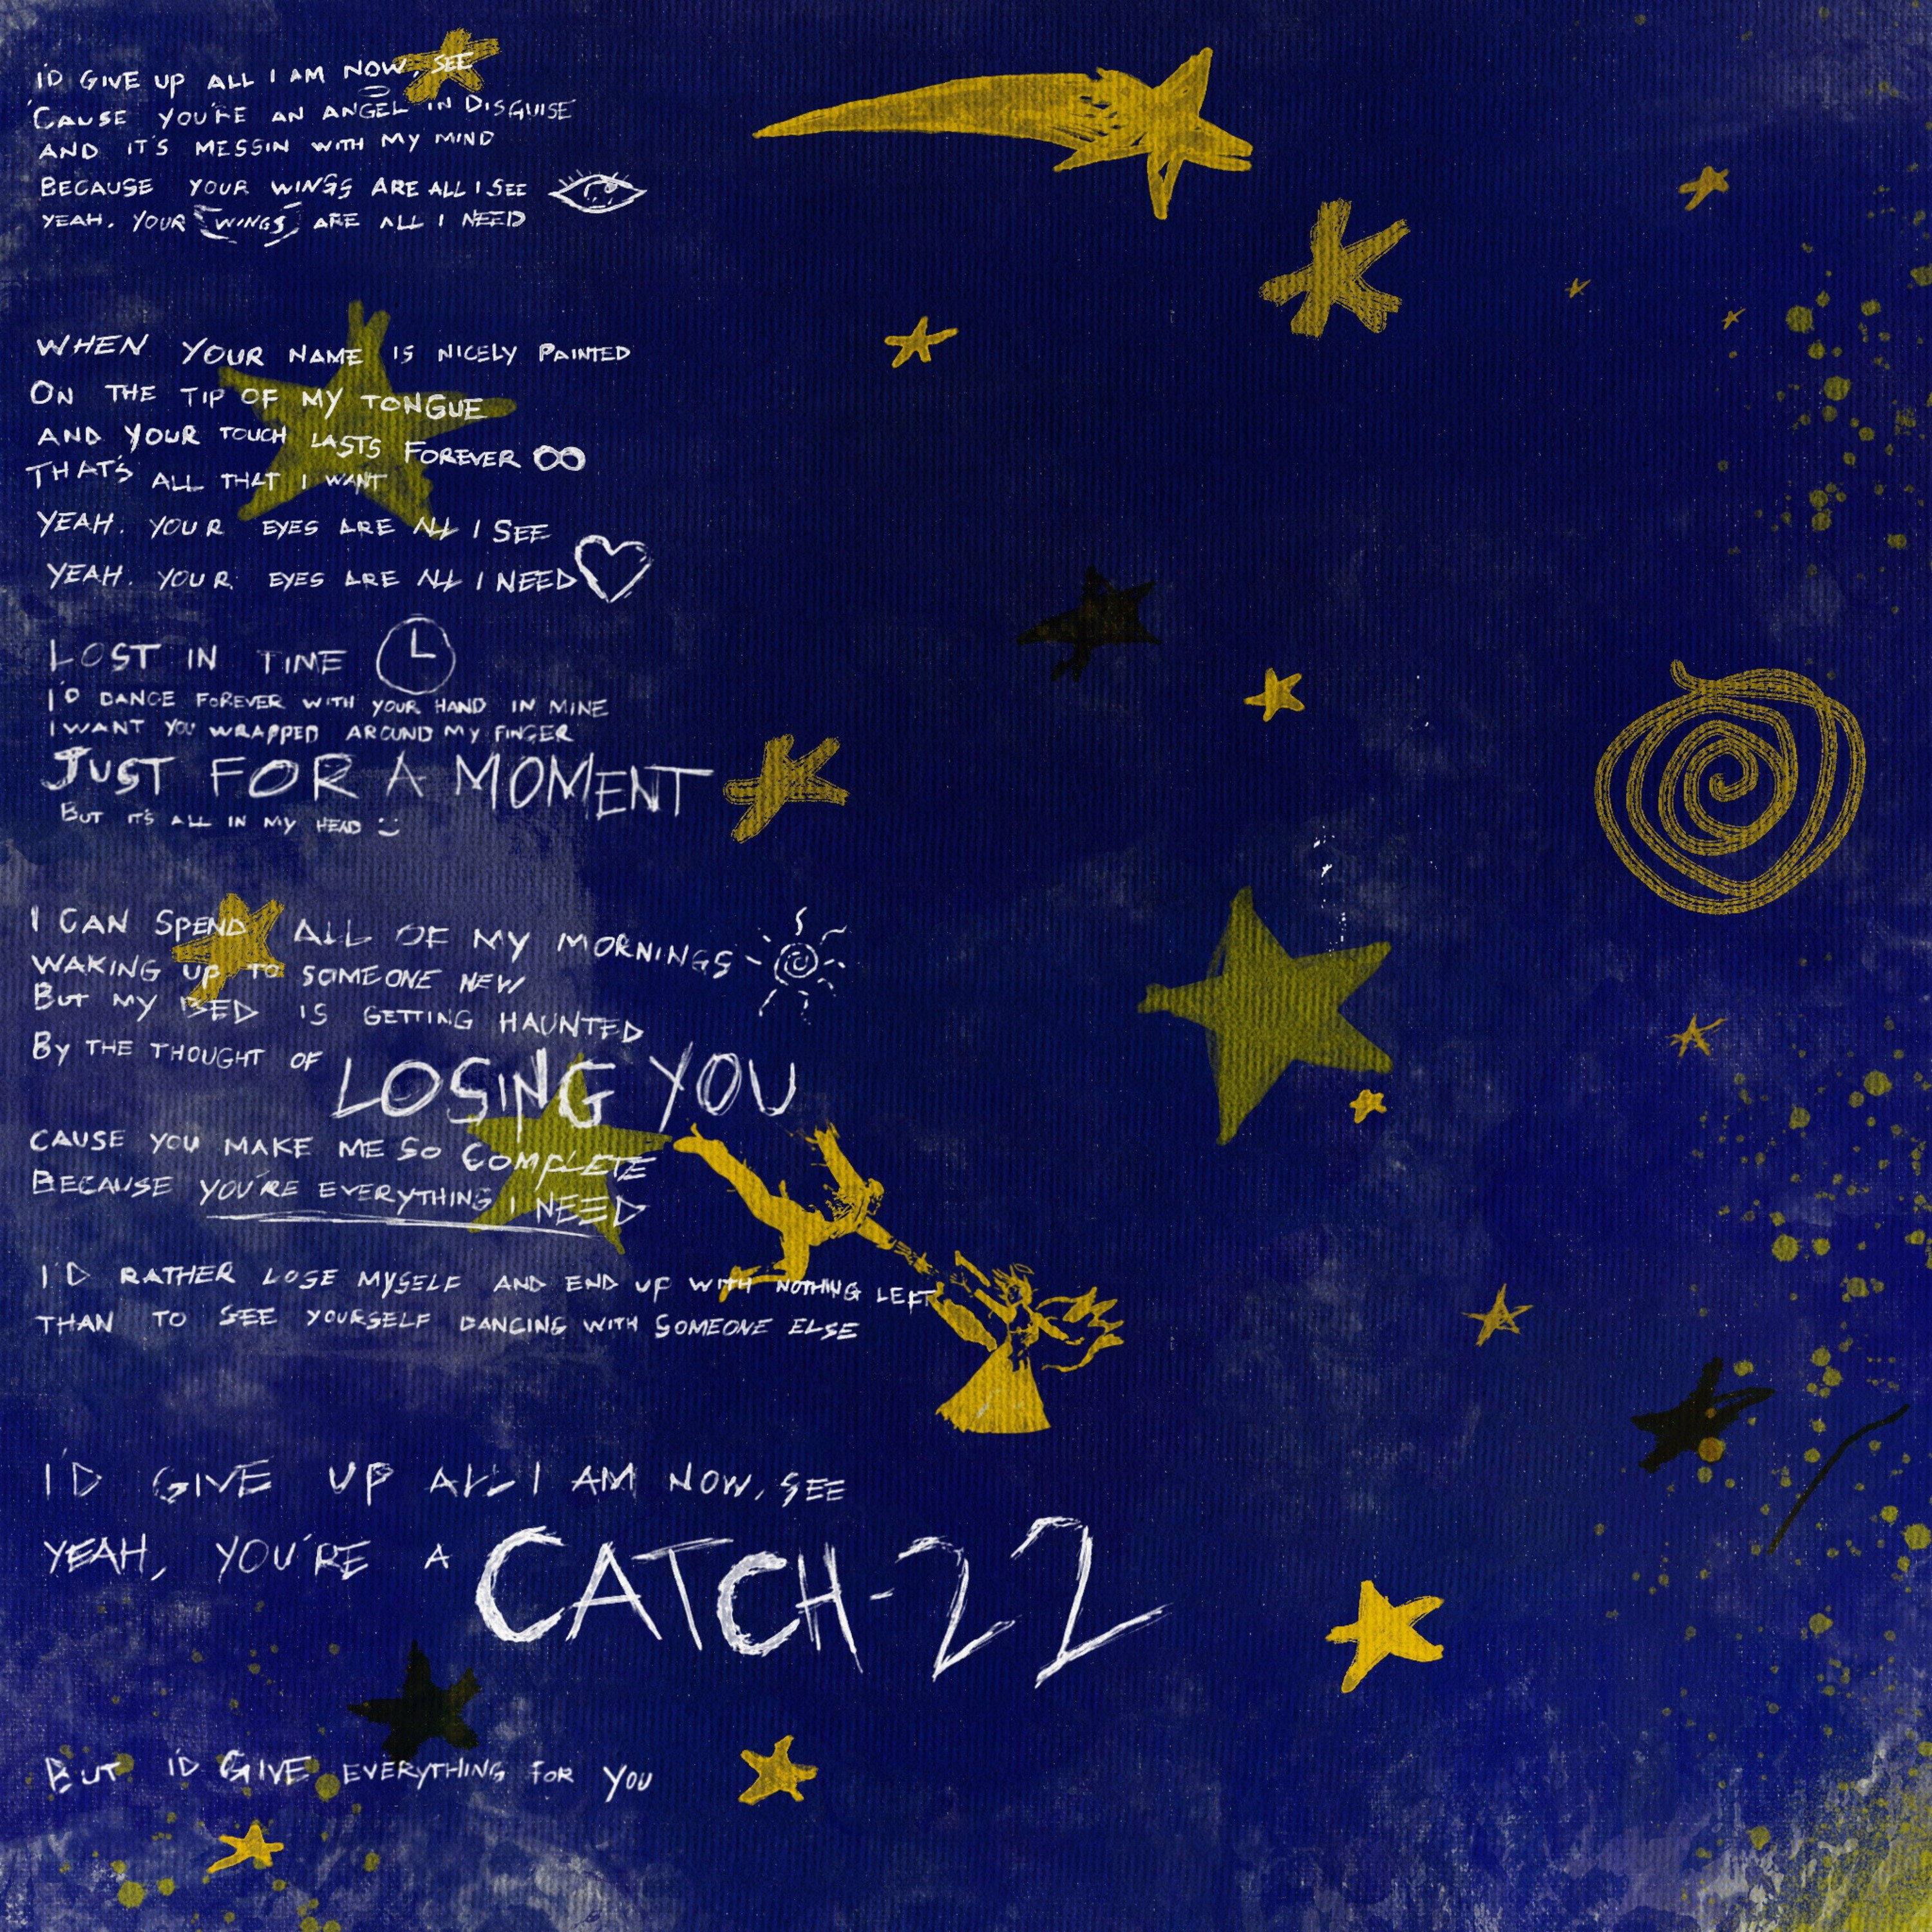 I'D GIVE UP ALL I AM NOW, SEE
'CAUSE YOU'RE AN ANGEL IN DISGUISE
AND IT'S MESSIN WITH MY MIND
BECAUSE YOUR WINGS ARE ALL I SEE
YEAH. YOUR WINGS ARE ALL I NEED
WHEN YOUR NAME IS NICELY PAINTED
ON THE TIP OF MY TONGUE
AND YOUR TOUCH LASTS FOREVER ∞
THAT'S ALL THAT I WANT
YEAH. YOUR EYES ARE ALL I SEE
YEAH. YOUR EYES ARE ALL I NEED
LOST IN TIME
I'D DANCE FOREVER WITH YOUR HAND IN MINE
I WANT YOU WRAPPED AROUND MY FINGER
JUST FOR A MOMENT
BUT IT'S ALL IN MY HEAD :)
I CAN SPEND ALL OF MY MORNINGS
WAKING UP TO SOMEONE NEW
BUT MY BED IS GETTING HAUNTED
BY THE THOUGHT OF LOSING YOU
CAUSE YOU MAKE ME SO COMPLETE
BECAUSE YOU'RE EVERYTHING I NEED
I'D RATHER LOSE MYSELF AND END UP WITH NOTHING LEFT
THAN TO SEE YOURSELF DANCING WITH SOMEONE ELSE
I'D GIVE UP ALL I AM NOW, SEE
YEAH, YOU'RE A CATCH-22
BUT I'D GIVE EVERYTHING FOR YOU